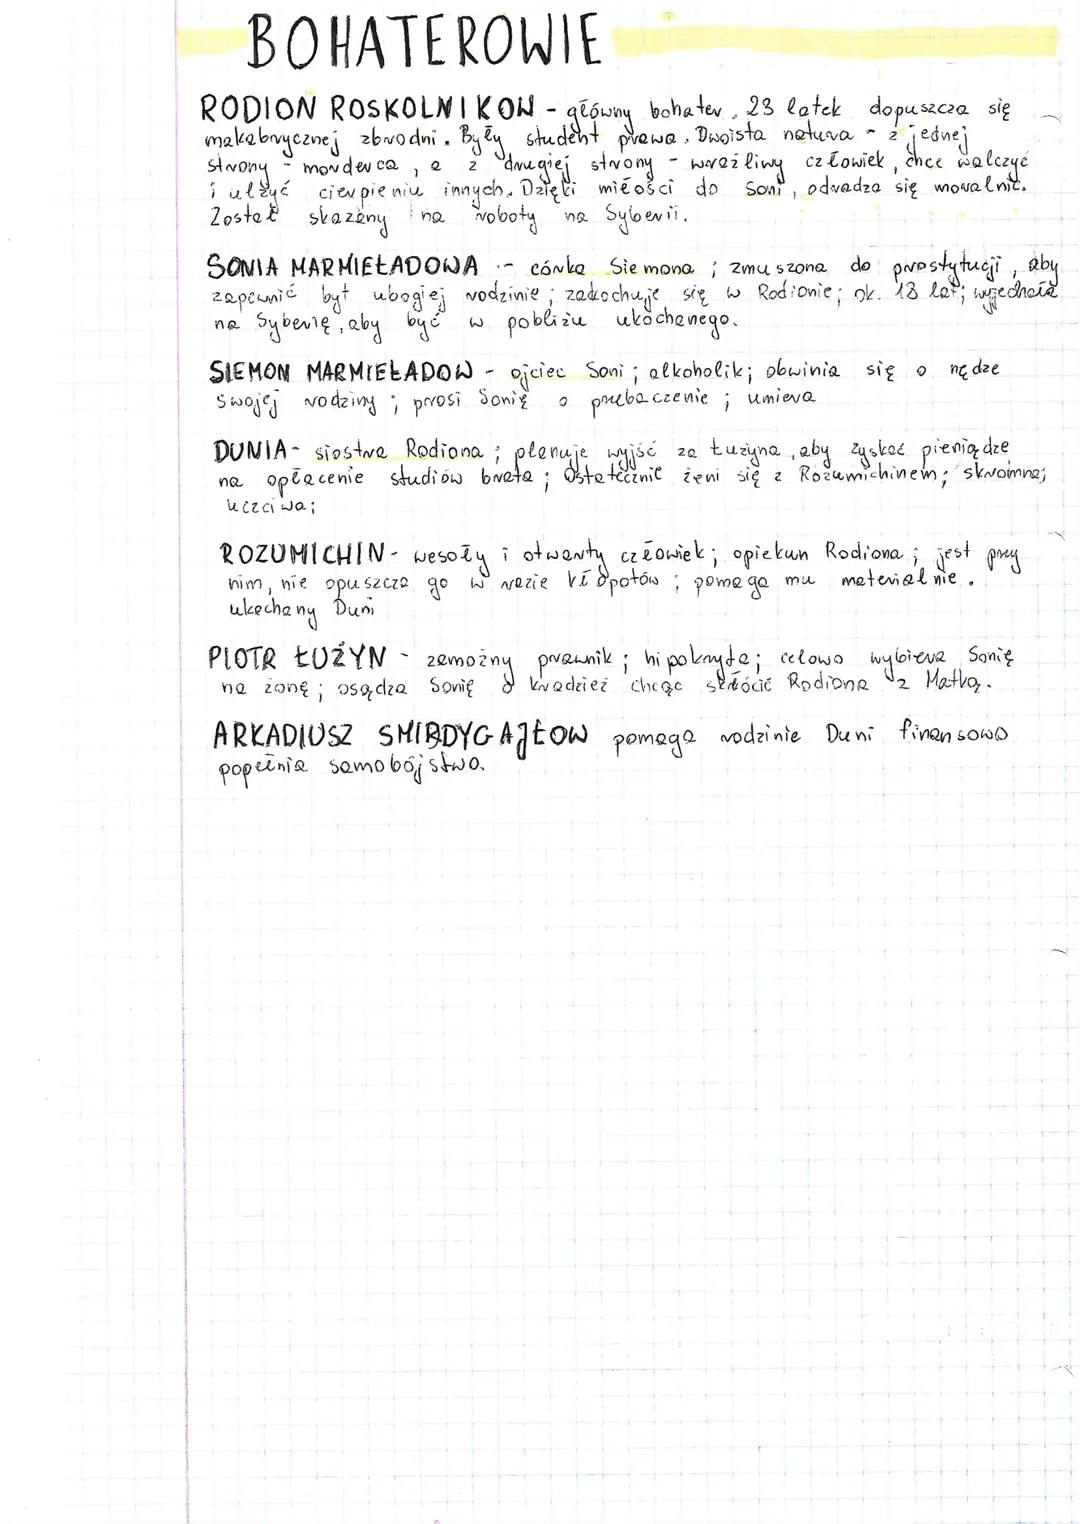 BOHATEROWIE
RODION ROSKOLNIKOW - główny bohater, 23 latek dopuszcza się
makabrycznej zbrodni. Były student prawa. Dwoista natura - z jednej
strony - morderca, a z drugiej strony - wrażliwy człowiek, chce walczyć
i ulżyć cierpieniu innych. Dzięki miłości do Soni, odradza się moralnie.
Został skazany na roboty na Syberii.
SONIA MARMIEŁADOWA - córka Siemona; zmuszona do prostytucji, aby
zapewnić byt ubogiej rodzinie; zakochuje się w Rodionie; ok. 18 lat; wyjechała
na Syberię, aby być w pobliżu ukochanego.
SIEMON MARMIEŁADOW - ojciec Soni; alkoholik; obwinia się o nędze
swojej rodziny; prosi Sonię o przebaczenie; umiera
DUNIA - siostra Rodiona; planuje wyjść za Łużyna, aby zyskać pieniądze
na opłacenie studiów brata; Ostatecznie żeni się z Rozumichinem; skromna;
uczciwa;
ROZUMICHIN - wesoły i otwarty człowiek; opiekun Rodiona; jest przy
nim, nie opuszcza go w razie kłopotów; pomaga mu materialnie.
ukochany Duni
PIOTR ŁUŻYN - zamożny prawnik; hipokryta; celowo wybiera Sonię
na żonę; osądza Sonię o kradzież chcąc skłócić Rodiona z Matką.
ARKADIUSZ SMIRDYGAJŁOW pomaga rodzinie Duni finansowo
popełnia samobójstwo.